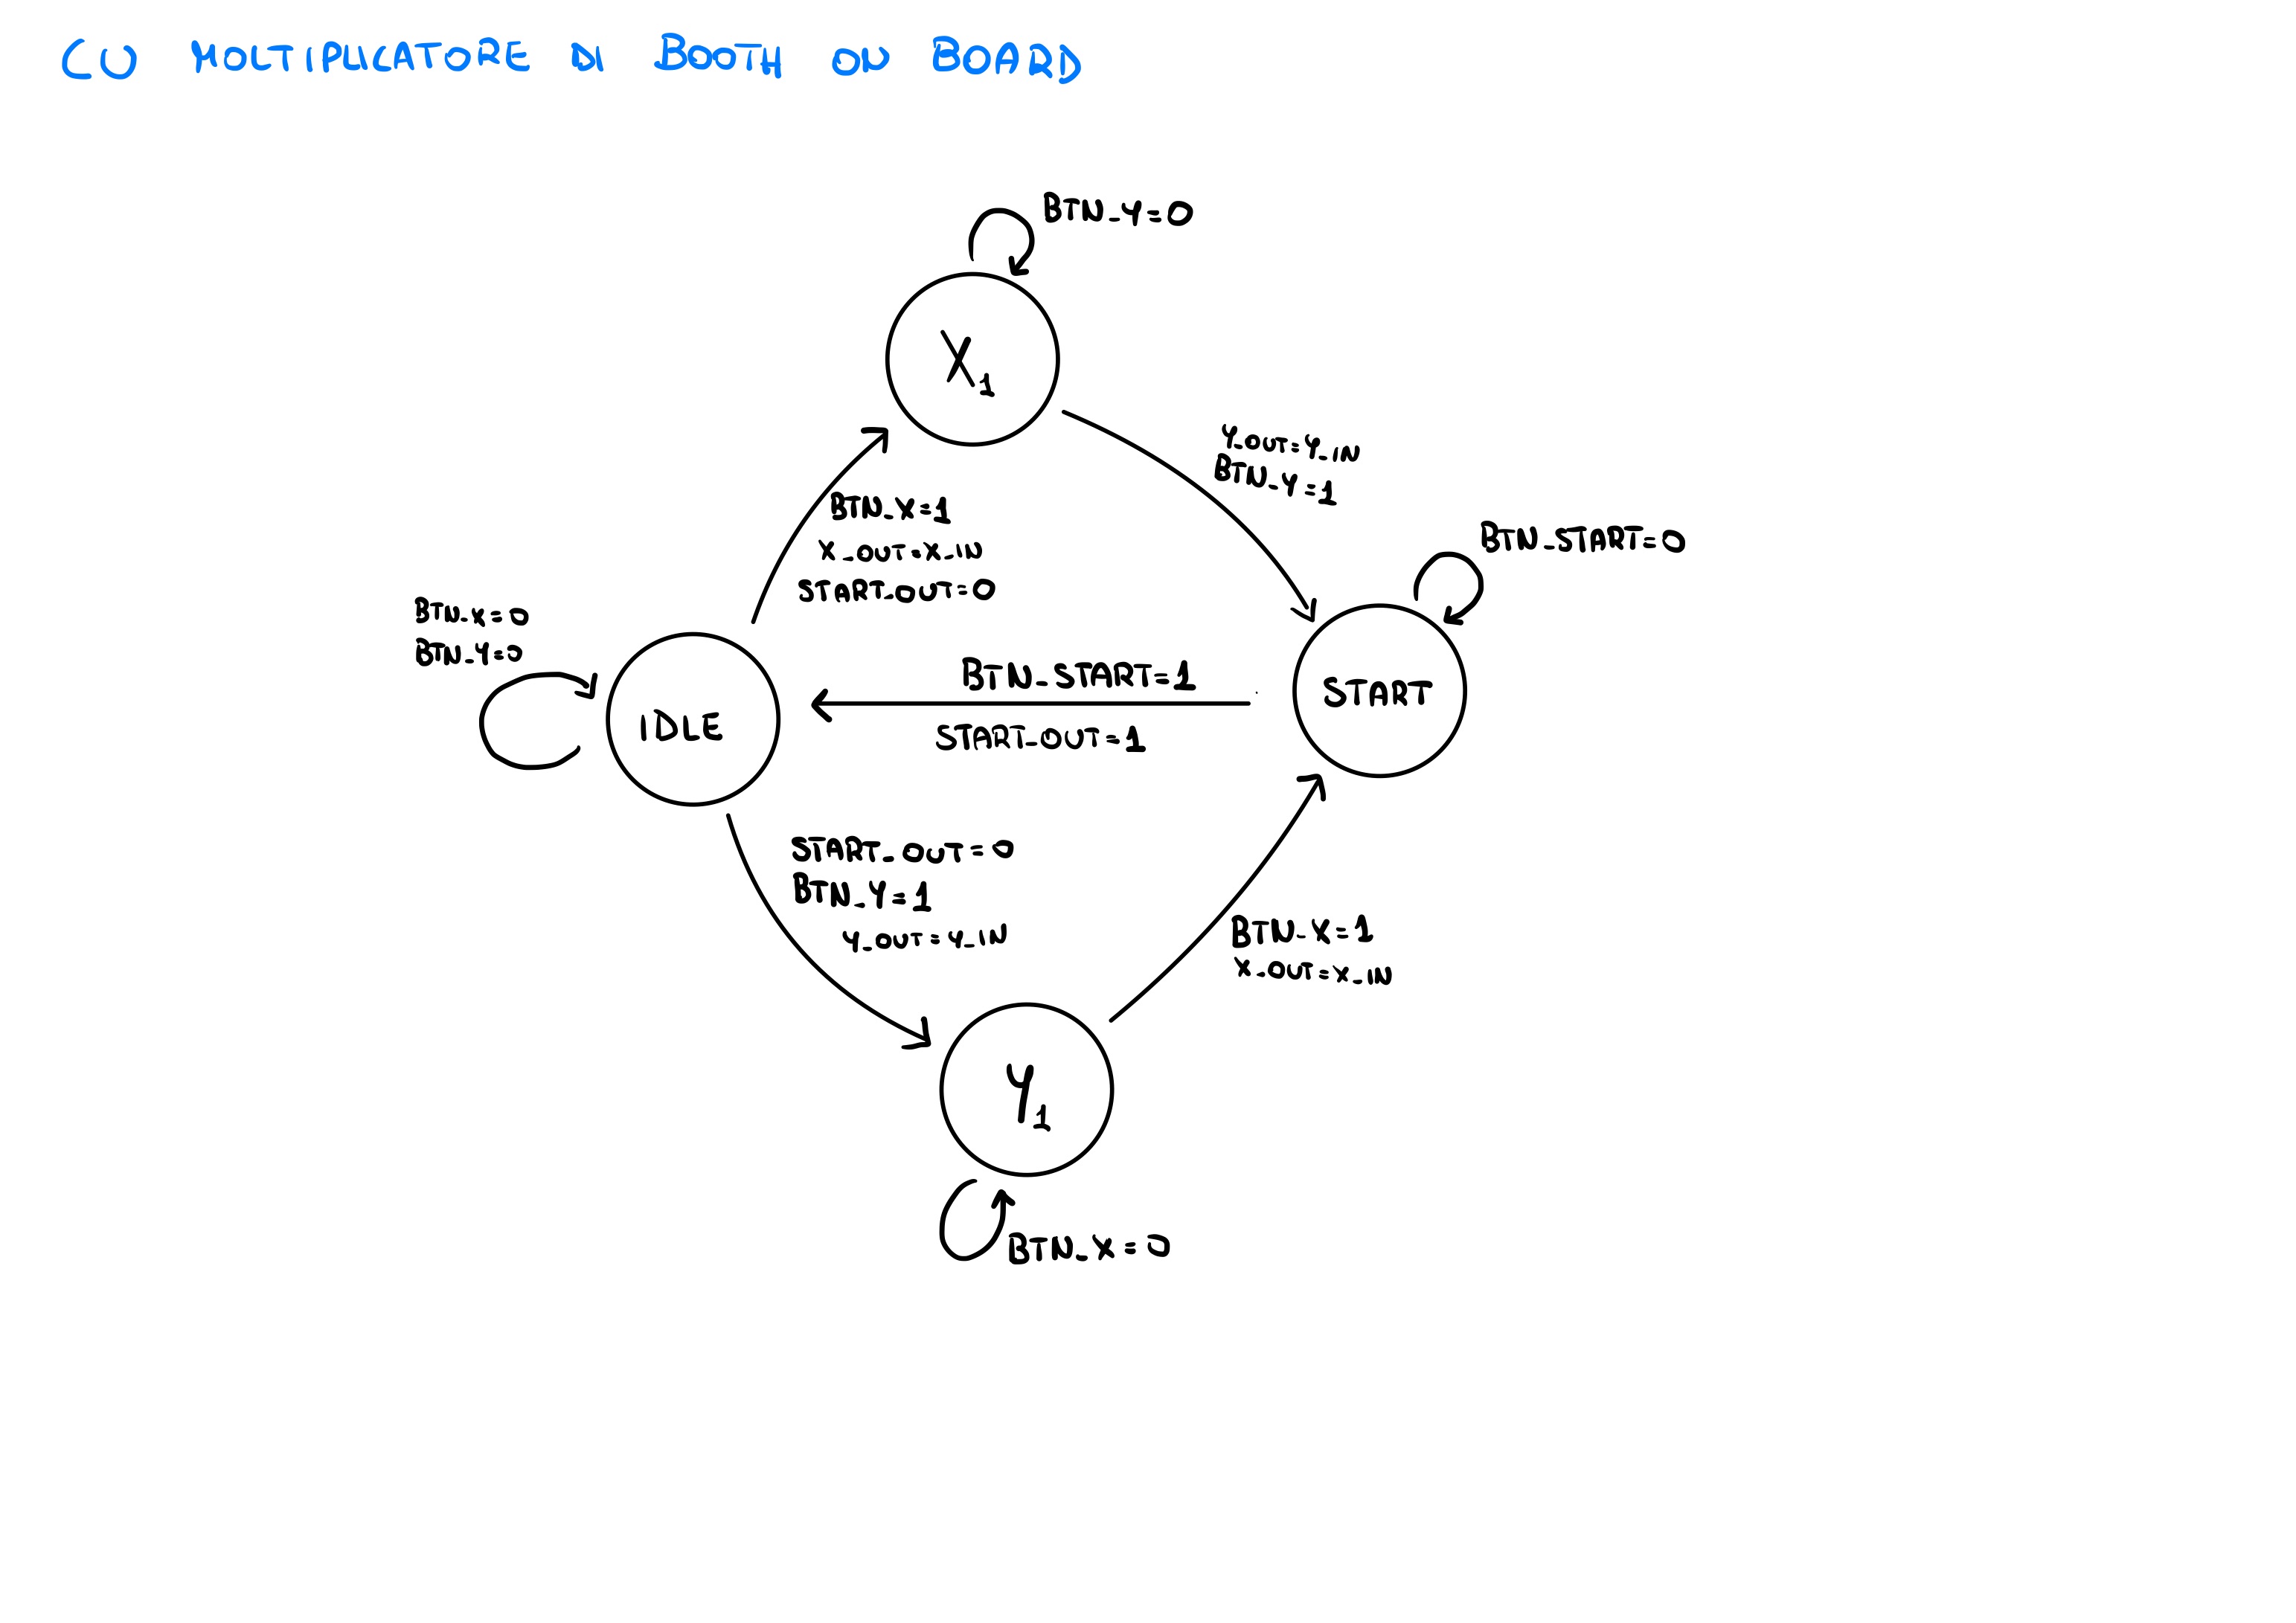 CU MOLTIPLICATORE DI BOOTH ON BOARD
BTN_Y=0
X1
Y_OUT=Y_IN
BTN_Y=1
BTN_X=1
X_OUT=X_IN
START_OUT=0
BTN_START=0
BTN_X=0
BTN_Y=0
IDLE
BTN_START=1
START_OUT=1
START
START_OUT=0
BTN_Y=1
Y_OUT=Y_IN
BTN_X=1
X_OUT=X_IN
Y1
BTN_X=0